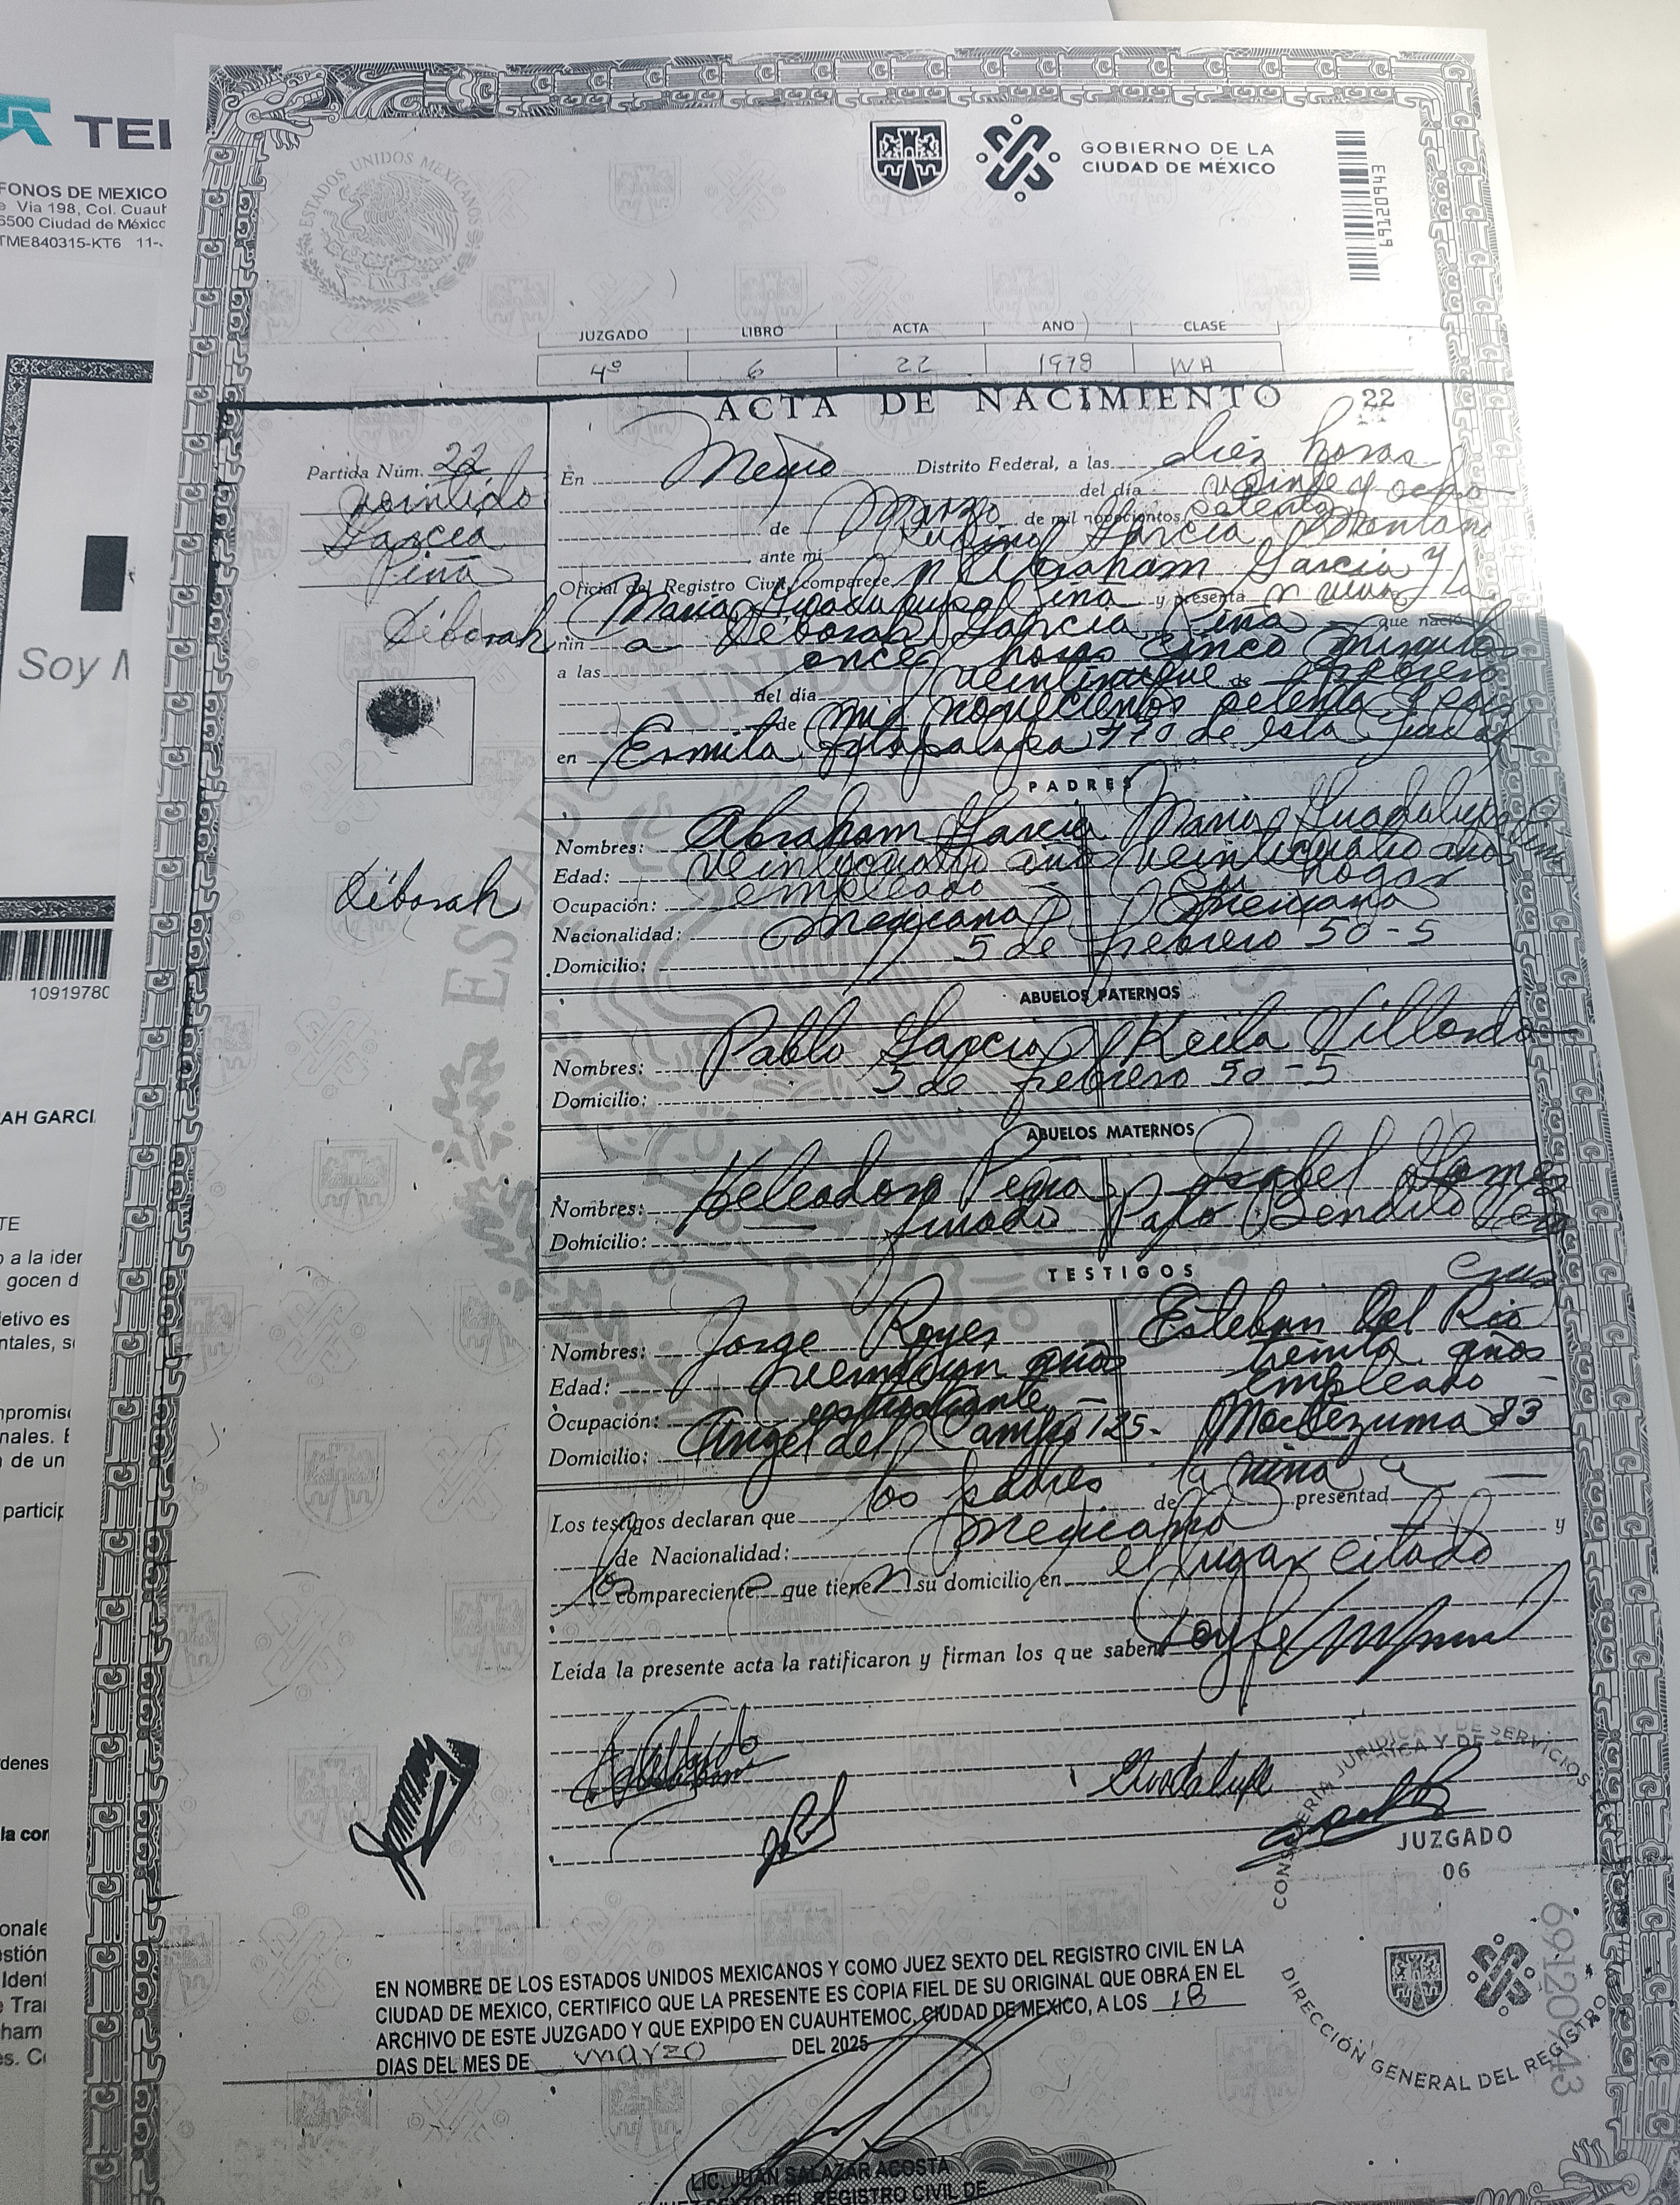 TEL
FONOS DE MEXICO
Via 198, Col. Cuauh
6500 Ciudad de México
TME840315-KT6 11-
Soy M
10919780
AH GARCI
TE
o a la iden
gocen d
jetivo es
ntales, s
npromis
nales.
de un
particip
rdenes
la con
onale
estión
Ident
e Tra
ham
es.
ESTADOS UNIDOS MEXICANOS
GOBIERNO DE LA
CIUDAD DE MÉXICO
69120943
JUZGADO LIBRO ACTA AÑO CLASE
4º 6 22 1978 WA
ACTA DE NACIMIENTO 22
Partida Núm. 22
García
Piña
Déborah
En México Distrito Federal, a las diez horas
del día veinte y ocho
de Marzo de mil novecientos setenta
ante mí García Montano
Oficial del Registro Civil, comparecen Abraham García y
María Guadalupe Piña y presentan viva la
niña Déborah García Piña que nació
a las once horas cinco minutos
del día veintinueve de febrero
de mil novecientos setenta y seis
en Ermita Iztapalapa 770 de esta ciudad
PADRES
Nombres: Abraham García María Guadalupe Piña
Edad: veinticuatro años veinticuatro años
Ocupación: empleado Su hogar
Nacionalidad: Mexicana Mexicana
Domicilio: 5 de febrero 50-5
ABUELOS PATERNOS
Nombres: Pablo García Keila Villordo
Domicilio: 5 de febrero 50-5
ABUELOS MATERNOS
Nombres: Piña Isabel
Domicilio: finado
TESTIGOS
Nombres: Jorge Reyes Esteban del Rio
Edad: años treinta años
Ocupación: estudiante Empleado
Domicilio: Angel del Campo 125- Moctezuma 83
Los testigos declaran que los padres de la niña presentad a
de Nacionalidad: Mexicana y
los comparecientes que tienen su domicilio en el lugar citado
Leída la presente acta la ratificaron y firman los que saben
Guadalupe
CONSEJERÍA JURÍDICA Y DE SERVICIOS
JUZGADO
06
DIRECCIÓN GENERAL DEL REGISTRO
69120943
EN NOMBRE DE LOS ESTADOS UNIDOS MEXICANOS Y COMO JUEZ SEXTO DEL REGISTRO CIVIL EN LA
CIUDAD DE MEXICO, CERTIFICO QUE LA PRESENTE ES COPIA FIEL DE SU ORIGINAL QUE OBRA EN EL
ARCHIVO DE ESTE JUZGADO Y QUE EXPIDO EN CUAUHTEMOC, CIUDAD DE MEXICO, A LOS 18
DIAS DEL MES DE marzo DEL 2025
LIC. JUAN SALAZAR ACOSTA
JUEZ SEXTO DEL REGISTRO CIVIL DE